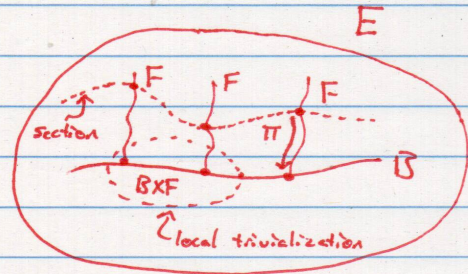 E
F
F
F
section
π
B
B×F
local trivialization